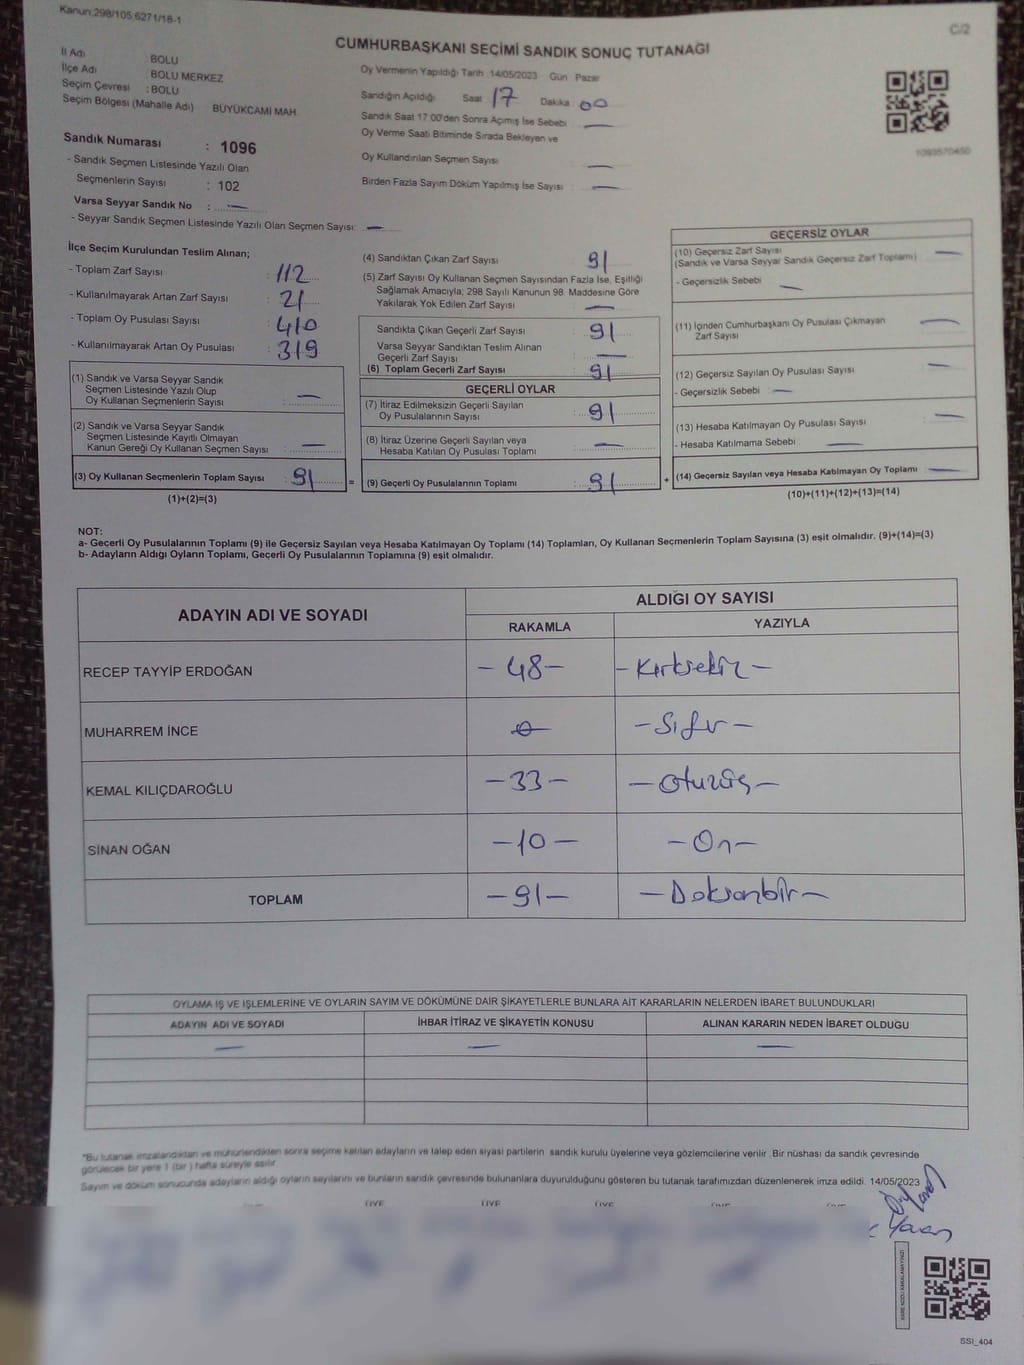 Kanun:298/105,6271/18-1
C/2
CUMHURBAŞKANI SEÇİMİ SANDIK SONUÇ TUTANAĞI
İl Adı : BOLU
İlçe Adı : BOLU MERKEZ
Seçim Çevresi : BOLU
Seçim Bölgesi (Mahalle Adı) : BÜYÜKCAMİ MAH.
Oy Vermenin Yapıldığı Tarih :14/05/2023 Gün Pazar
Sandığın Açıldığı Saat 17 Dakika 00
Sandık Saat 17:00'den Sonra Açılmış İse Sebebi —
Oy Verme Saati Bitiminde Sırada Bekleyen ve
Oy Kullandırılan Seçmen Sayısı —
Birden Fazla Sayım Döküm Yapılmış İse Sayısı : —
1093570450
Sandık Numarası : 1096
- Sandık Seçmen Listesinde Yazılı Olan
Seçmenlerin Sayısı : 102
Varsa Seyyar Sandık No : —
- Seyyar Sandık Seçmen Listesinde Yazılı Olan Seçmen Sayısı: —
İlçe Seçim Kurulundan Teslim Alınan;
- Toplam Zarf Sayısı : 112
- Kullanılmayarak Artan Zarf Sayısı : 21
- Toplam Oy Pusulası Sayısı : 410
- Kullanılmayarak Artan Oy Pusulası : 319
(1) Sandık ve Varsa Seyyar Sandık
Seçmen Listesinde Yazılı Olup
Oy Kullanan Seçmenlerin Sayısı : —
(2) Sandık ve Varsa Seyyar Sandık
Seçmen Listesinde Kayıtlı Olmayan
Kanun Gereği Oy Kullanan Seçmen Sayısı : —
(3) Oy Kullanan Seçmenlerin Toplam Sayısı : 91
(1)+(2)=(3)
(4) Sandıktan Çıkan Zarf Sayısı 91
(5) Zarf Sayısı Oy Kullanan Seçmen Sayısından Fazla İse, Eşitliği
Sağlamak Amacıyla; 298 Sayılı Kanunun 98. Maddesine Göre
Yakılarak Yok Edilen Zarf Sayısı —
Sandıkta Çıkan Geçerli Zarf Sayısı : 91
Varsa Seyyar Sandıktan Teslim Alınan
Geçerli Zarf Sayısı : —
(6) Toplam Geçerli Zarf Sayısı : 91
GEÇERLİ OYLAR
(7) İtiraz Edilmeksizin Geçerli Sayılan
Oy Pusulalarının Sayısı : 91
(8) İtiraz Üzerine Geçerli Sayılan veya
Hesaba Katılan Oy Pusulası Toplamı : —
= (9) Geçerli Oy Pusulalarının Toplamı : 91 +
GEÇERSİZ OYLAR
(10) Geçersiz Zarf Sayısı —
(Sandık ve Varsa Seyyar Sandık Geçersiz Zarf Toplamı)
- Geçersizlik Sebebi —
(11) İçinden Cumhurbaşkanı Oy Pusulası Çıkmayan —
Zarf Sayısı
(12) Geçersiz Sayılan Oy Pusulası Sayısı —
- Geçersizlik Sebebi : —
(13) Hesaba Katılmayan Oy Pusulası Sayısı —
- Hesaba Katılmama Sebebi : —
(14) Geçersiz Sayılan veya Hesaba Katılmayan Oy Toplamı —
(10)+(11)+(12)+(13)=(14)
NOT:
a- Geçerli Oy Pusulalarının Toplamı (9) ile Geçersiz Sayılan veya Hesaba Katılmayan Oy Toplamı (14) Toplamları, Oy Kullanan Seçmenlerin Toplam Sayısına (3) eşit olmalıdır. (9)+(14)=(3)
b- Adayların Aldığı Oyların Toplamı, Geçerli Oy Pusulalarının Toplamına (9) eşit olmalıdır.
ADAYIN ADI VE SOYADI ALDIĞI OY SAYISI
RAKAMLA YAZIYLA
RECEP TAYYİP ERDOĞAN -48- -Kırksekiz-
MUHARREM İNCE -0- -Sıfır-
KEMAL KILIÇDAROĞLU -33- -Otuzüç-
SİNAN OĞAN -10- -On-
TOPLAM -91- -Doksanbir-
OYLAMA İŞ VE İŞLEMLERİNE VE OYLARIN SAYIM VE DÖKÜMÜNE DAİR ŞİKAYETLERLE BUNLARA AİT KARARLARIN NELERDEN İBARET BULUNDUKLARI
ADAYIN ADI VE SOYADI İHBAR İTİRAZ VE ŞİKAYETİN KONUSU ALINAN KARARIN NEDEN İBARET OLDUĞU
— — —
*Bu tutanak imzalandıktan ve mühürlendikten sonra seçime katılan adayların ve talep eden siyasi partilerin sandık kurulu üyelerine veya gözlemcilerine verilir. Bir nüshası da sandık çevresinde
görülecek bir yere 1 (bir) hafta süreyle asılır.
Sayım ve döküm sonucunda adayların aldığı oyların sayılarını ve bunların sandık çevresinde bulunanlara duyurulduğunu gösteren bu tutanak tarafımızdan düzenlenerek imza edildi. 14/05/2023
ÜYE ÜYE ÜYE ÜYE ÜYE ÜYE
SSI_404